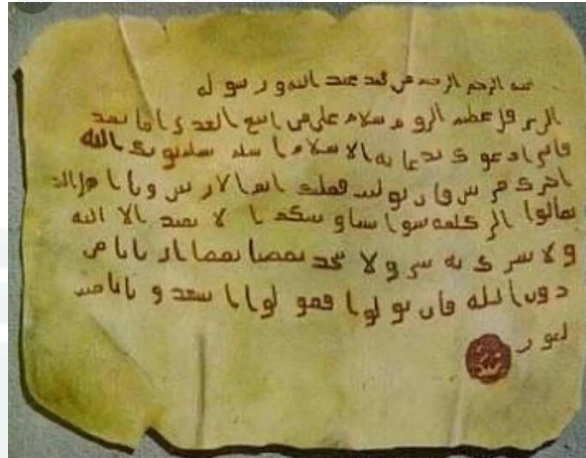 الرحمن الرحيم من محمد عبد الله ورسوله
الى هرقل عظيم الروم سلام على من اتبع الهدى اما بعد
فانى ادعوك بدعاية الاسلام اسلم تسلم يوتك الله
اجرك مرتين فان توليت فعليك اثم الاريسين ويا اهل الك
تعالوا الى كلمة سوا بيننا وبينكم ا لا نعبد الا الله
ولا نشرك به شى ولا يتخذ بعضنا بعضا اربابا من
دون الله فان تولوا فقولوا اشهدوا بانا مس
لمون